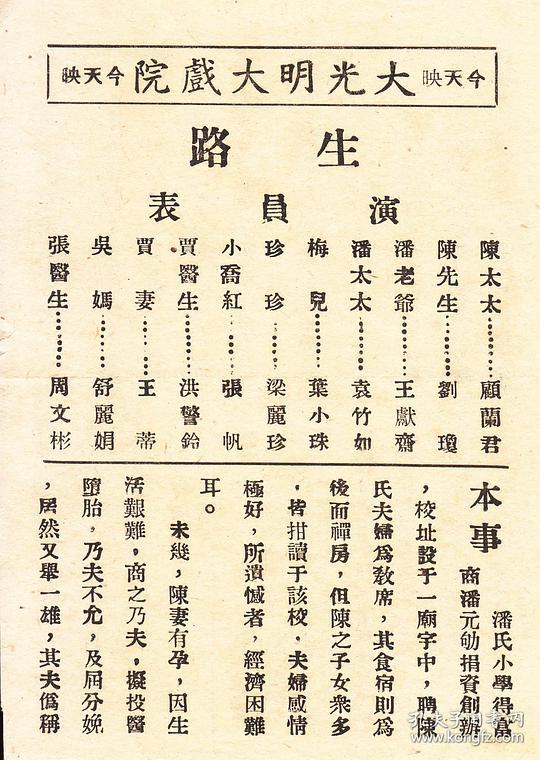 今天映 大光明大戲院 今天映
生路
演員表
陳太太………顧蘭君
陳先生………劉瓊
潘老爺………王獻齋
潘太太………袁竹如
梅兒………葉小珠
珍珍………梁麗珍
小喬紅………張帆
賈醫生………洪警鈴
賈妻………王蒂
吳媽………舒麗娟
張醫生………周文彬
本事
潘氏小學得富
商潘元劬捐資創辦
，校址設于一廟宇中，聘陳
氏夫婦爲敎席，其食宿則爲
後面禪房，但陳之子女衆多
，皆拑讀于該校，夫婦感情
極好，所遺憾者，經濟困難
耳。
未幾，陳妻有孕，因生
活艱難，商之乃夫，擬投醫
墮胎，乃夫不允，及屆分娩
，居然又舉一雄，其夫僞稱
孔夫子舊書网
www.kongfz.com